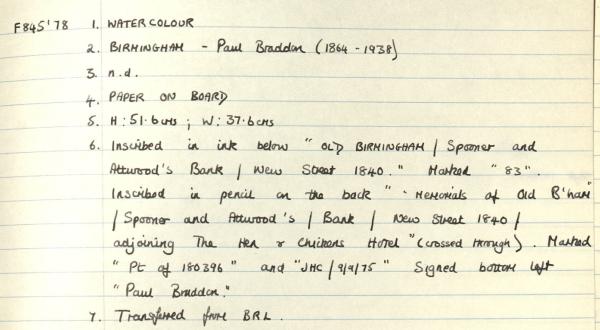 F845'78 1. WATERCOLOUR
2. BIRMINGHAM - Paul Braddon (1864-1938)
3. n.d.
4. PAPER ON BOARD
5. H: 51.6 cms ; W: 37.6 cms
6. Inscribed in ink below "OLD BIRMINGHAM / Spooner and
Attwood's Bank / New Street 1840." Marked "83".
Inscribed in pencil on the back "Memorials of Old B'ham
/ Spooner and Attwood's / Bank / New Street 1840 /
adjoining The Hen & Chickens Hotel" (crossed through). Marked
"Pt of 180396" and "JHC / 9/9/75" Signed bottom left
"Paul Braddon."
7. Transferred from BRL.